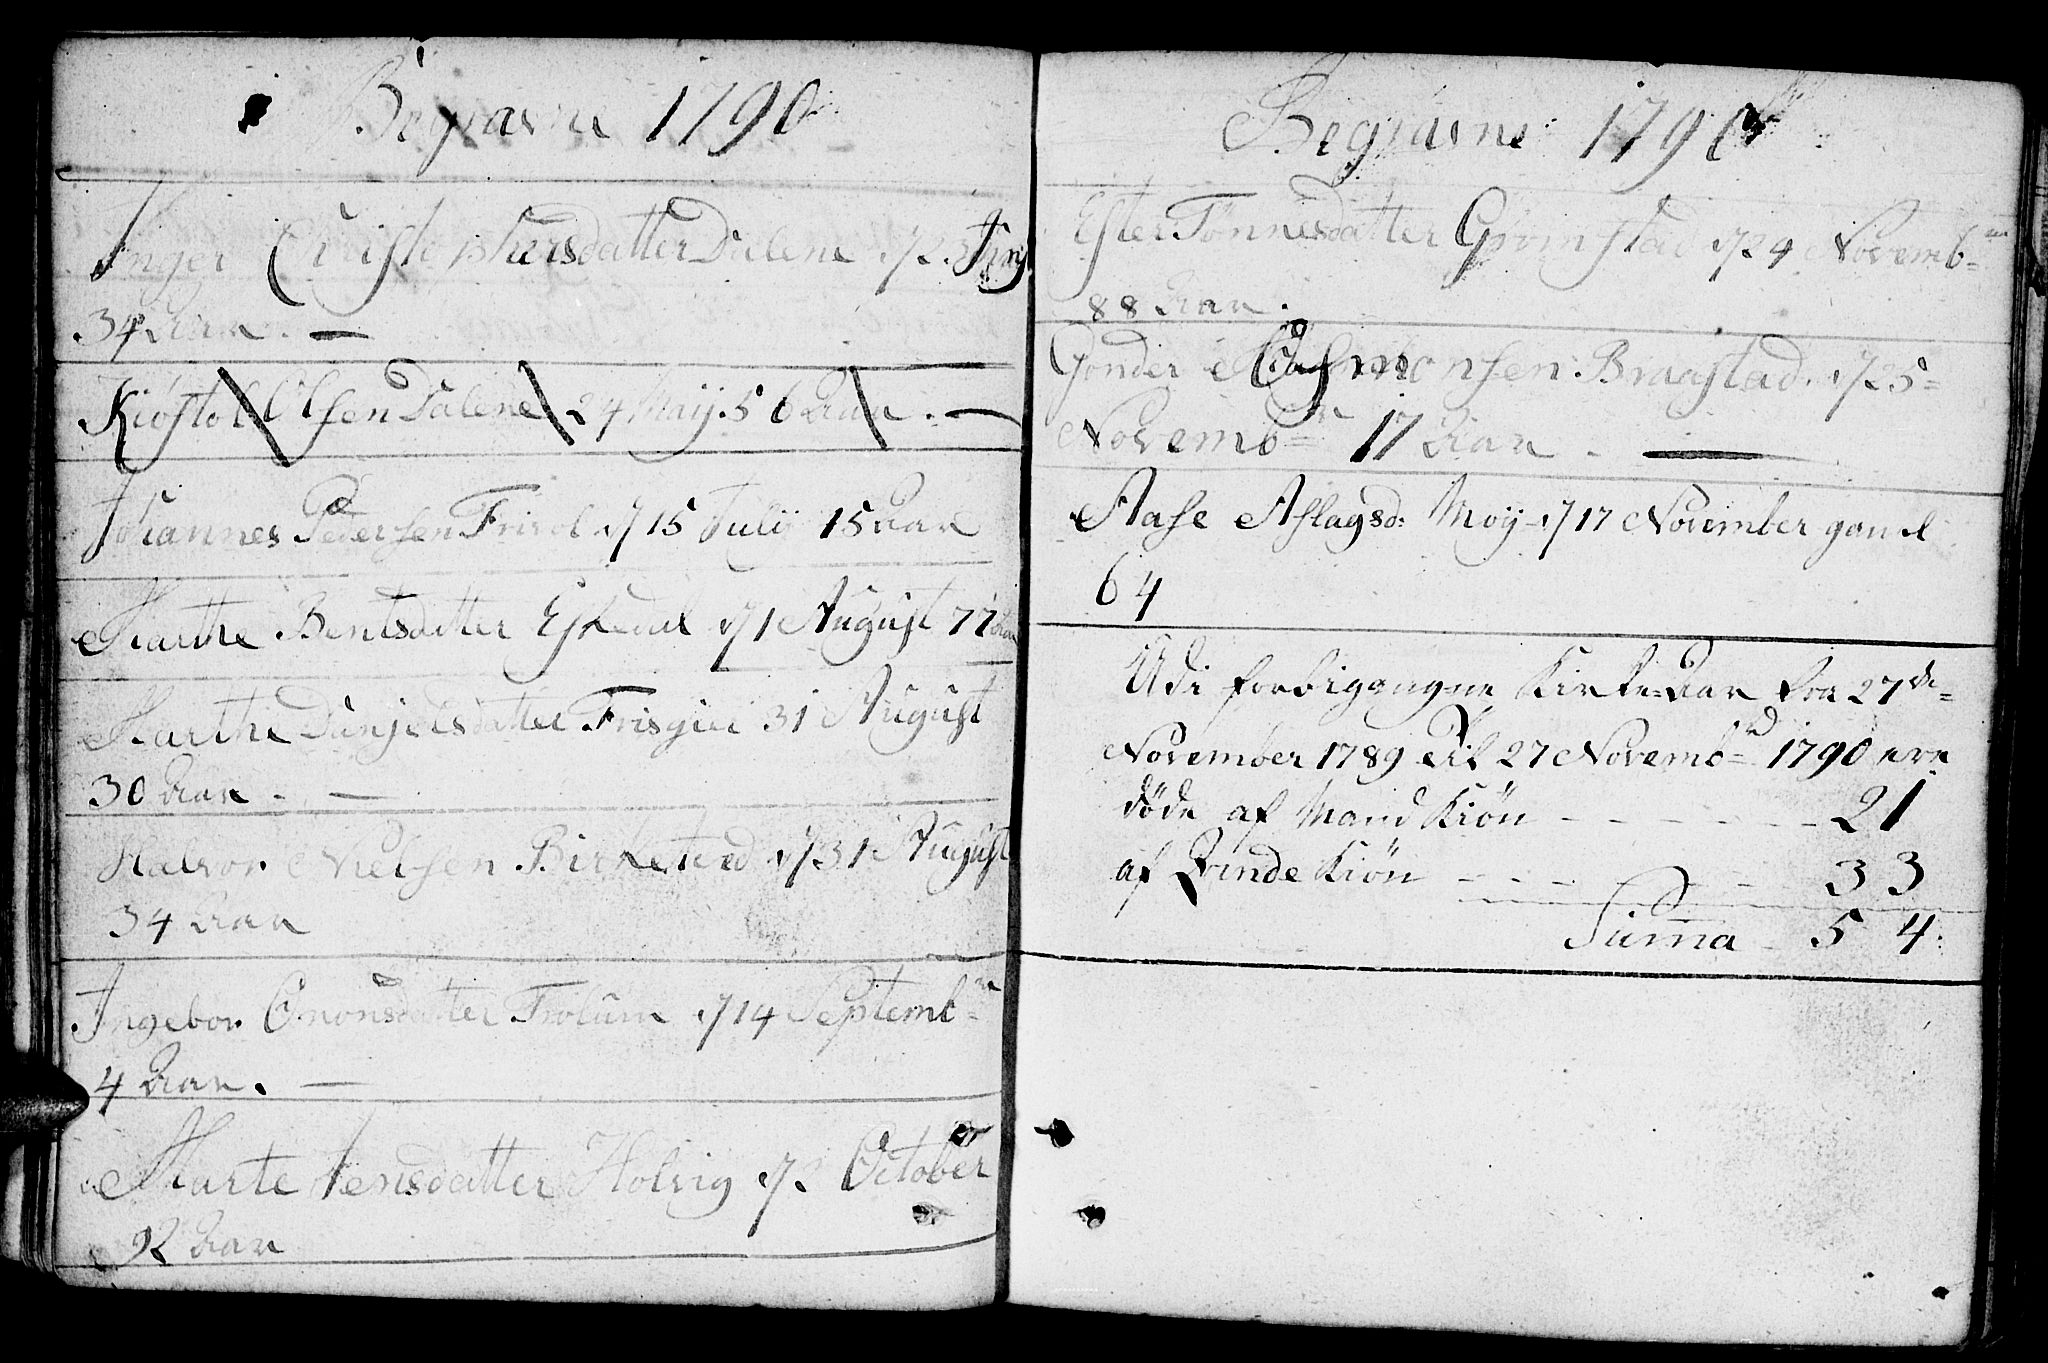 Begravne 1790
Inger Christophersdatter Dalene d 2 Junj
34 Aar. —
Kiøstol Olsen Dalene 24 Maij. 56 Aar. —
Johannes Pedersen Frivol d 15 Julij 15 Aar
Marthe Bentsdatter Eskedal d 1 August 77 Aar
Marthe Danjelsdatter 31 August
30 Aar. —
Halvor Nielsen Birketved d 31 August
34 Aar
Ingebor Omonsdatter d 14 Septembr
4 Aar. —
Marte Jensdatter Holvig d 2 October
92 Aar
Begravne 1790
Ester Tønnesdatter Grømstad d 24 Novembr
88 Aar.
Gonder Braastad. d 25
Novembr 17 Aar. —
Aase Aslagsd: Moij d 17 November gaml
64
Udi forbigangne Kirke-Aar fra 27de
November 1789 til 27 Novembr 1790 ere
døde af Mand Kiøn — 21
af Qvinde Kiøn — 33
Suma — 54.